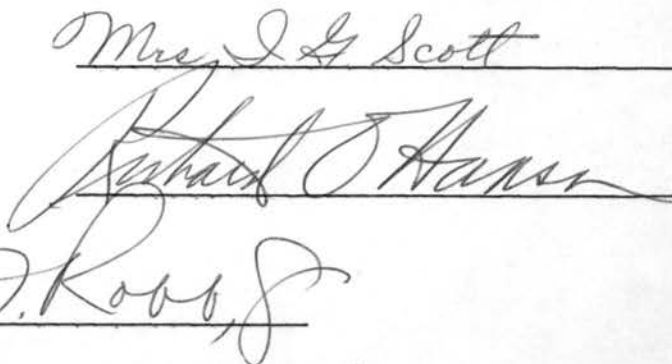 Mrs I G Scott
Richard O Hanson
J. Robb, Jr